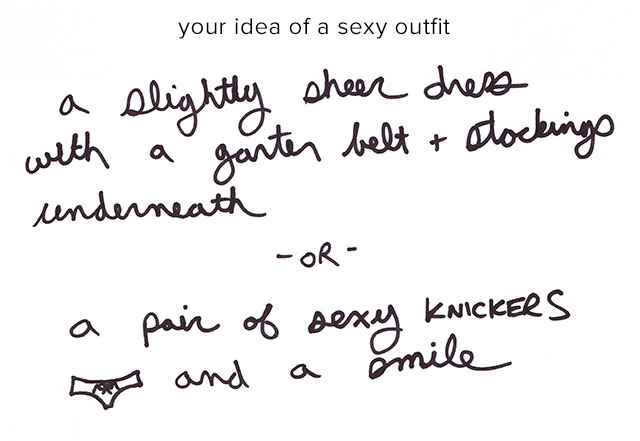 your idea of a sexy outfit
a slightly sheer dress
with a garter belt + stockings
underneath
-OR-
a pair of sexy KNICKERS
and a smile